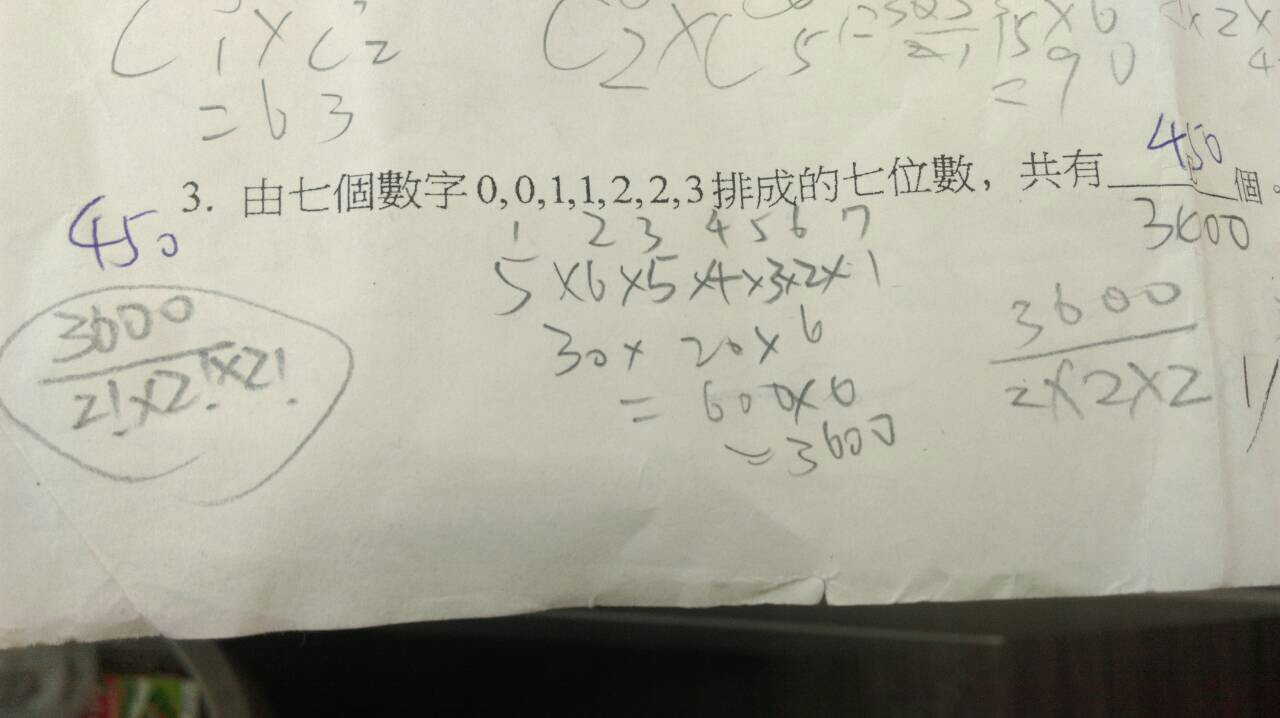 C₁ × C₂
= 63
C₂ × C₅
15 × 6
= 90
450
3. 由七個數字 0,0,1,1,2,2,3 排成的七位數，共有 450 個。
3600
450
1 2 3 4 5 6 7
5 × 6 × 5 × 4 × 3 × 2 × 1
30 × 20 × 6
= 600 × 6
= 3600
3600
2! × 2! × 2!
3600
2 × 2 × 2